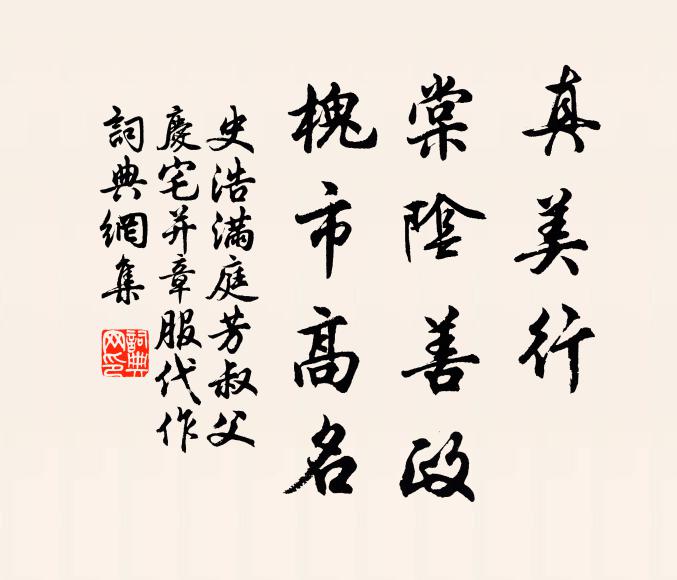 真美行
棠陰善政
槐市高名
史浩滿庭芳叔父
慶宅并章服代作
詞典網集
詞典网印